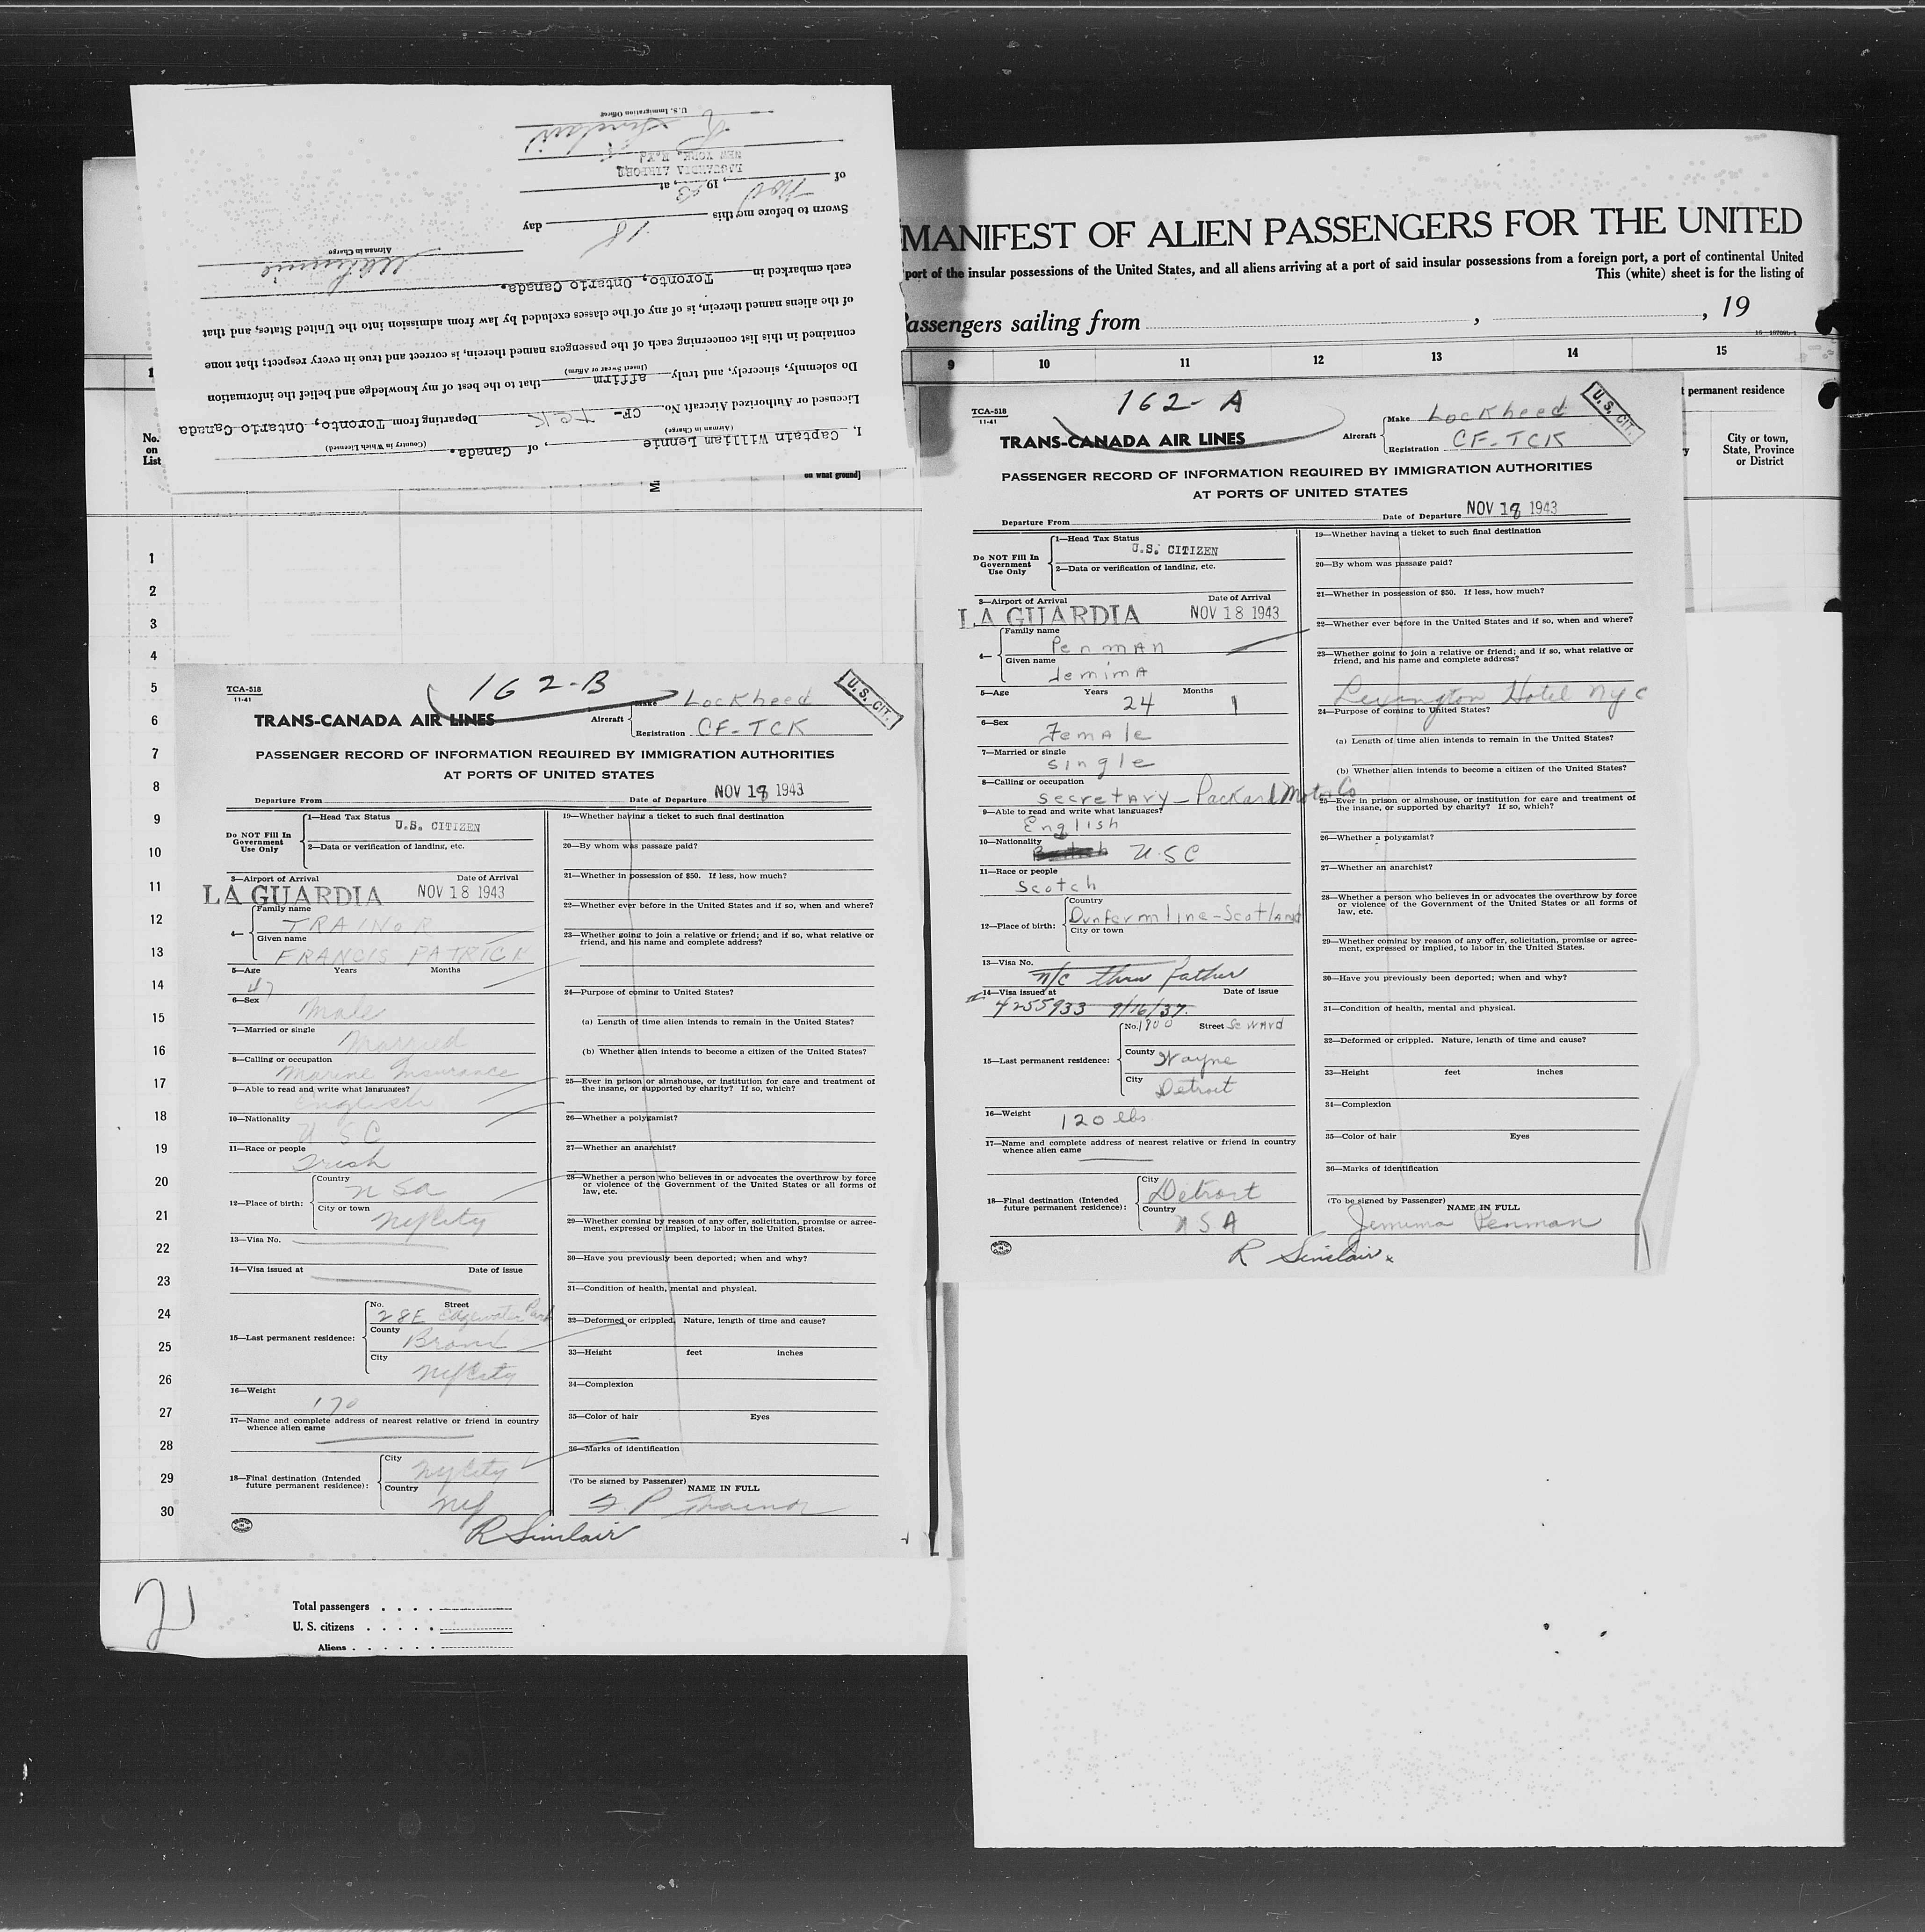 U.S. Immigration Officer
R Sinclair
LAGUARDIA AIRPORT
NEW YORK, N.Y.
of Nov, 1943, at
Sworn to before me this 18 day
Airman in Charge
each embarked in Toronto, Ontario Canada.
of the aliens named therein, is of any of the classes excluded by law from admission into the United States, and that
contained in this list concerning each of the passengers named therein, is correct and true in every respect; that none
(Insert Swear or Affirm)
Do solemnly, sincerely, and truly affirm that to the best of my knowledge and belief the information
Licensed or Authorized Aircraft No. CF- TCK Departing from Toronto, Ontario Canada
(Airman in Charge) (Country in Which Licensed)
I, Captain William Lennie, of Canada.
MANIFEST OF ALIEN PASSENGERS FOR THE UNITED
port of the insular possessions of the United States, and all aliens arriving at a port of said insular possessions from a foreign port, a port of continental United
This (white) sheet is for the listing of
assengers sailing from , , 19
9 10 11 12 13 14 15
permanent residence
City or town,
State, Province
or District
No.
on
List
on what ground]
1
2
3
4
5
6
7
8
9
10
11
12
13
14
15
16
17
18
19
20
21
22
23
24
25
26
27
28
29
30
162-B
U. S. CIT.
TCA-518
11-41
TRANS-CANADA AIR LINES
Aircraft
Make Lockheed
Registration CF-TCK
PASSENGER RECORD OF INFORMATION REQUIRED BY IMMIGRATION AUTHORITIES
AT PORTS OF UNITED STATES
Departure From Date of Departure NOV 18 1943
Do NOT Fill In
Government
Use Only
1—Head Tax Status
U.S. CITIZEN
2—Data or verification of landing, etc.
3—Airport of Arrival Date of Arrival
LA GUARDIA NOV 18 1943
4—
Family name
TRAINOR
Given name
FRANCIS PATRICK
5—Age Years Months
47
6—Sex
Male
7—Married or single
Married
8—Calling or occupation
Marine Insurance
9—Able to read and write what languages?
English
10—Nationality
U S C
11—Race or people
Irish
12—Place of birth:
Country
U Sa
City or town
NYCity
13—Visa No.
14—Visa issued at Date of issue
15—Last permanent residence:
No. Street
28E Edgewater Park
County
Bronx
City
NYCity
16—Weight
170
17—Name and complete address of nearest relative or friend in country
whence alien came
18—Final destination (Intended
future permanent residence):
City
NYCity
Country
NY
19—Whether having a ticket to such final destination
20—By whom was passage paid?
21—Whether in possession of $50. If less, how much?
22—Whether ever before in the United States and if so, when and where?
23—Whether going to join a relative or friend; and if so, what relative or
friend, and his name and complete address?
24—Purpose of coming to United States?
(a) Length of time alien intends to remain in the United States?
(b) Whether alien intends to become a citizen of the United States?
25—Ever in prison or almshouse, or institution for care and treatment of
the insane, or supported by charity? If so, which?
26—Whether a polygamist?
27—Whether an anarchist?
28—Whether a person who believes in or advocates the overthrow by force
or violence of the Government of the United States or all forms of
law, etc.
29—Whether coming by reason of any offer, solicitation, promise or agree-
ment, expressed or implied, to labor in the United States.
30—Have you previously been deported; when and why?
31—Condition of health, mental and physical.
32—Deformed or crippled. Nature, length of time and cause?
33—Height feet inches
34—Complexion
35—Color of hair Eyes
36—Marks of identification
(To be signed by Passenger)
NAME IN FULL
F. P Trainor
R Sinclair
Total passengers
U. S. citizens
Aliens
162-A
U. S. CIT.
TCA-518
11-41
TRANS-CANADA AIR LINES
Aircraft
Make Lockheed
Registration CF-TCK
PASSENGER RECORD OF INFORMATION REQUIRED BY IMMIGRATION AUTHORITIES
AT PORTS OF UNITED STATES
Departure From Date of Departure NOV 18 1943
Do NOT Fill In
Government
Use Only
1—Head Tax Status
U.S. CITIZEN
2—Data or verification of landing, etc.
3—Airport of Arrival Date of Arrival
LA GUARDIA NOV 18 1943
4—
Family name
Penman
Given name
Jemima
5—Age Years Months
24 1
6—Sex
Female
7—Married or single
single
8—Calling or occupation
secretary - Packard Motor Co
9—Able to read and write what languages?
English
10—Nationality
U.S C
11—Race or people
Scotch
12—Place of birth:
Country
Dunfermline-Scotland
City or town
13—Visa No.
n/c thru father
14—Visa issued at Date of issue
4255933 9/16/37.
15—Last permanent residence:
No. 1900 Street Seward
County
Wayne
City
Detroit
16—Weight
120 lbs.
17—Name and complete address of nearest relative or friend in country
whence alien came
18—Final destination (Intended
future permanent residence):
City
Detroit
Country
U S A
19—Whether having a ticket to such final destination
20—By whom was passage paid?
21—Whether in possession of $50. If less, how much?
22—Whether ever before in the United States and if so, when and where?
23—Whether going to join a relative or friend; and if so, what relative or
friend, and his name and complete address?
Lexington Hotel NyC
24—Purpose of coming to United States?
(a) Length of time alien intends to remain in the United States?
(b) Whether alien intends to become a citizen of the United States?
25—Ever in prison or almshouse, or institution for care and treatment of
the insane, or supported by charity? If so, which?
26—Whether a polygamist?
27—Whether an anarchist?
28—Whether a person who believes in or advocates the overthrow by force
or violence of the Government of the United States or all forms of
law, etc.
29—Whether coming by reason of any offer, solicitation, promise or agree-
ment, expressed or implied, to labor in the United States.
30—Have you previously been deported; when and why?
31—Condition of health, mental and physical.
32—Deformed or crippled. Nature, length of time and cause?
33—Height feet inches
34—Complexion
35—Color of hair Eyes
36—Marks of identification
(To be signed by Passenger)
NAME IN FULL
Jemima Penman
R Sinclair